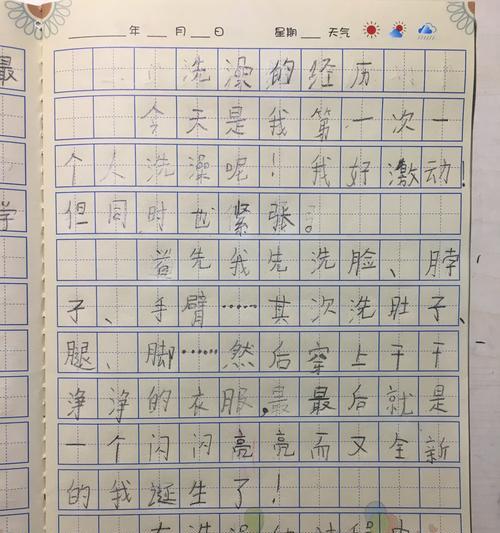 年 月 日 星期 天气
洗澡的经历
今天是我第一次一
个人洗澡呢！我好激动！
但同时也紧张。
首先我先洗脸、脖
子、手臂……其次洗肚子、
腿、脚……然后穿上干干
净净的衣服，最后就是
一个闪闪亮亮而又全新
的我诞生了！
最
学